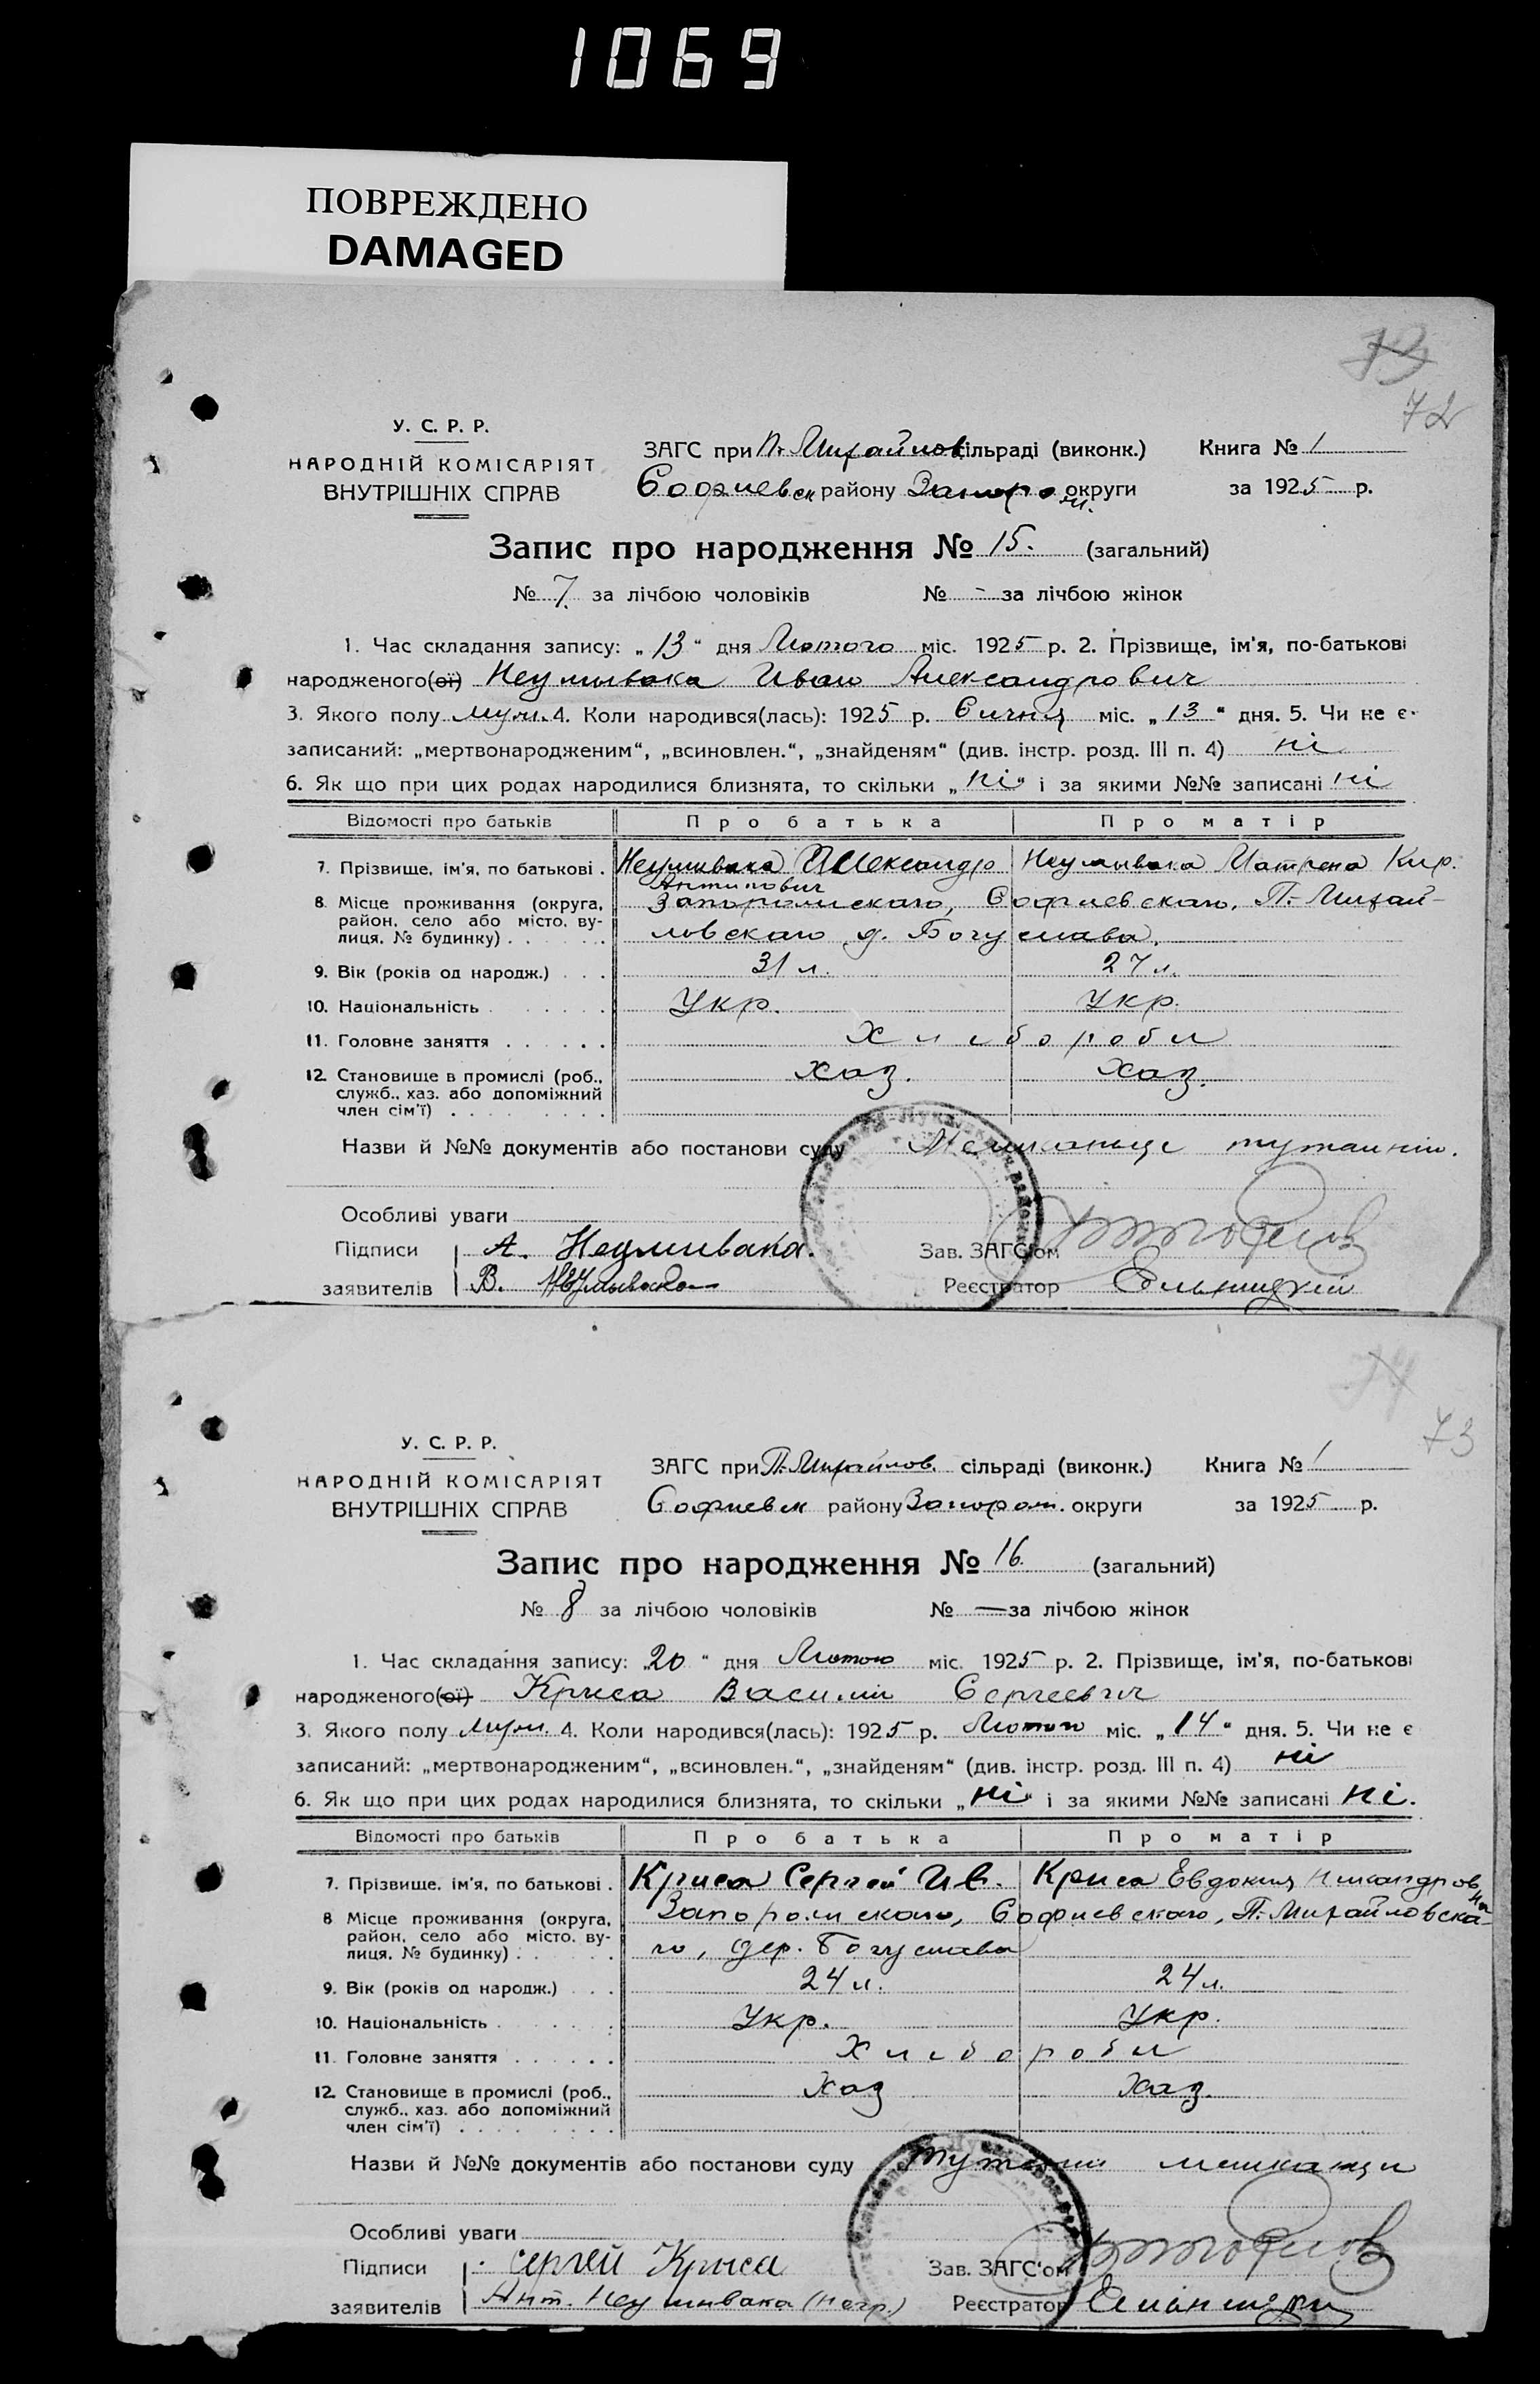 1069
ПОВРЕЖДЕНО
DAMAGED
73
72
У. С. Р. Р.
НАРОДНІЙ КОМІСАРІЯТ
ВНУТРІШНІХ СПРАВ
ЗАГС при П. Михайлов. сільраді (виконк.) Книга № 1
Софиевск району Запорож. округи за 1925 р.
Запис про народження № 15. (загальний)
№ 7. за лічбою чоловіків № - за лічбою жінок
1. Час складання запису: „13“ дня Лютого міс. 1925 р. 2. Прізвище, ім'я, по-батькові
народженого(ої) Неумивака Иван Александрович
3. Якого полу муж. 4. Коли народився(лась): 1925 р. Сичня міс. „13“ дня. 5. Чи не є
записаний: „мертвонародженим“, „всиновлен.“, „знайденям“ (див. інстр. розд. III п. 4) ні
6. Як що при цих родах народилися близнята, то скільки „ні“ і за якими №№ записані ні
Відомості про батьків Про батька Про матір
7. Прізвище, ім'я, по батькові . Неумивака Александр Антипович Неумывака Матрена Кир.
8. Місце проживання (округа, район, село або місто, вулиця, № будинку) . . . Запорожскаго, Софиевскаго, П.-Михай-
ловскаго д. Богуслава.
9. Вік (років од народж.) . . . 31 л. 27 л.
10. Національність . . . . . Укр. Укр.
11. Головне заняття . . . . . . Хлибороби
12. Становище в промислі (роб., служб., хаз. або допоміжний член сім'ї) . . . . . . . . Хаз. Хаз.
Назви й №№ документів або постанови суду Мешканци тутешни.
Особливі уваги
Підписи А. Неумивака. Зав. ЗАГС'ом
заявителів В. Неумывака Реєстратор
74
73
У. С. Р. Р.
НАРОДНІЙ КОМІСАРІЯТ
ВНУТРІШНІХ СПРАВ
ЗАГС при П. Михайлов. сільраді (виконк.) Книга № 1
Софиевск району Запорож. округи за 1925 р.
Запис про народження № 16. (загальний)
№ 8 за лічбою чоловіків № — за лічбою жінок
1. Час складання запису: „20“ дня Лютого міс. 1925 р. 2. Прізвище, ім'я, по-батькові
народженого(ої) Криса Василий Сергеевич
3. Якого полу муж. 4. Коли народився(лась): 1925 р. Лютого міс. „14“ дня. 5. Чи не є
записаний: „мертвонародженим“, „всиновлен.“, „знайденям“ (див. інстр. розд. III п. 4) ні
6. Як що при цих родах народилися близнята, то скільки „ні“ і за якими №№ записані ні.
Відомості про батьків Про батька Про матір
7. Прізвище, ім'я, по батькові . Криса Сергей Ив. Криса Евдокия Никандровна
8 Місце проживання (округа, район, село або місто, вулиця, № будинку) . . . Запорожскаго, Софиевскаго, П.-Михайловска-
го, дер. Богуслава
9. Вік (років од народж.) . . . 24 л. 24 л.
10. Національність . . . . . Укр. Укр.
11. Головне заняття . . . . . . Хлибороби
12. Становище в промислі (роб., служб., хаз. або допоміжний член сім'ї) . . . . . . . . Хаз Хаз.
Назви й №№ документів або постанови суду тутешни мешканци
Особливі уваги
Підписи Сергей Крыса Зав. ЗАГС'ом
заявителів Ант. Неумивака (негр.) Реєстратор